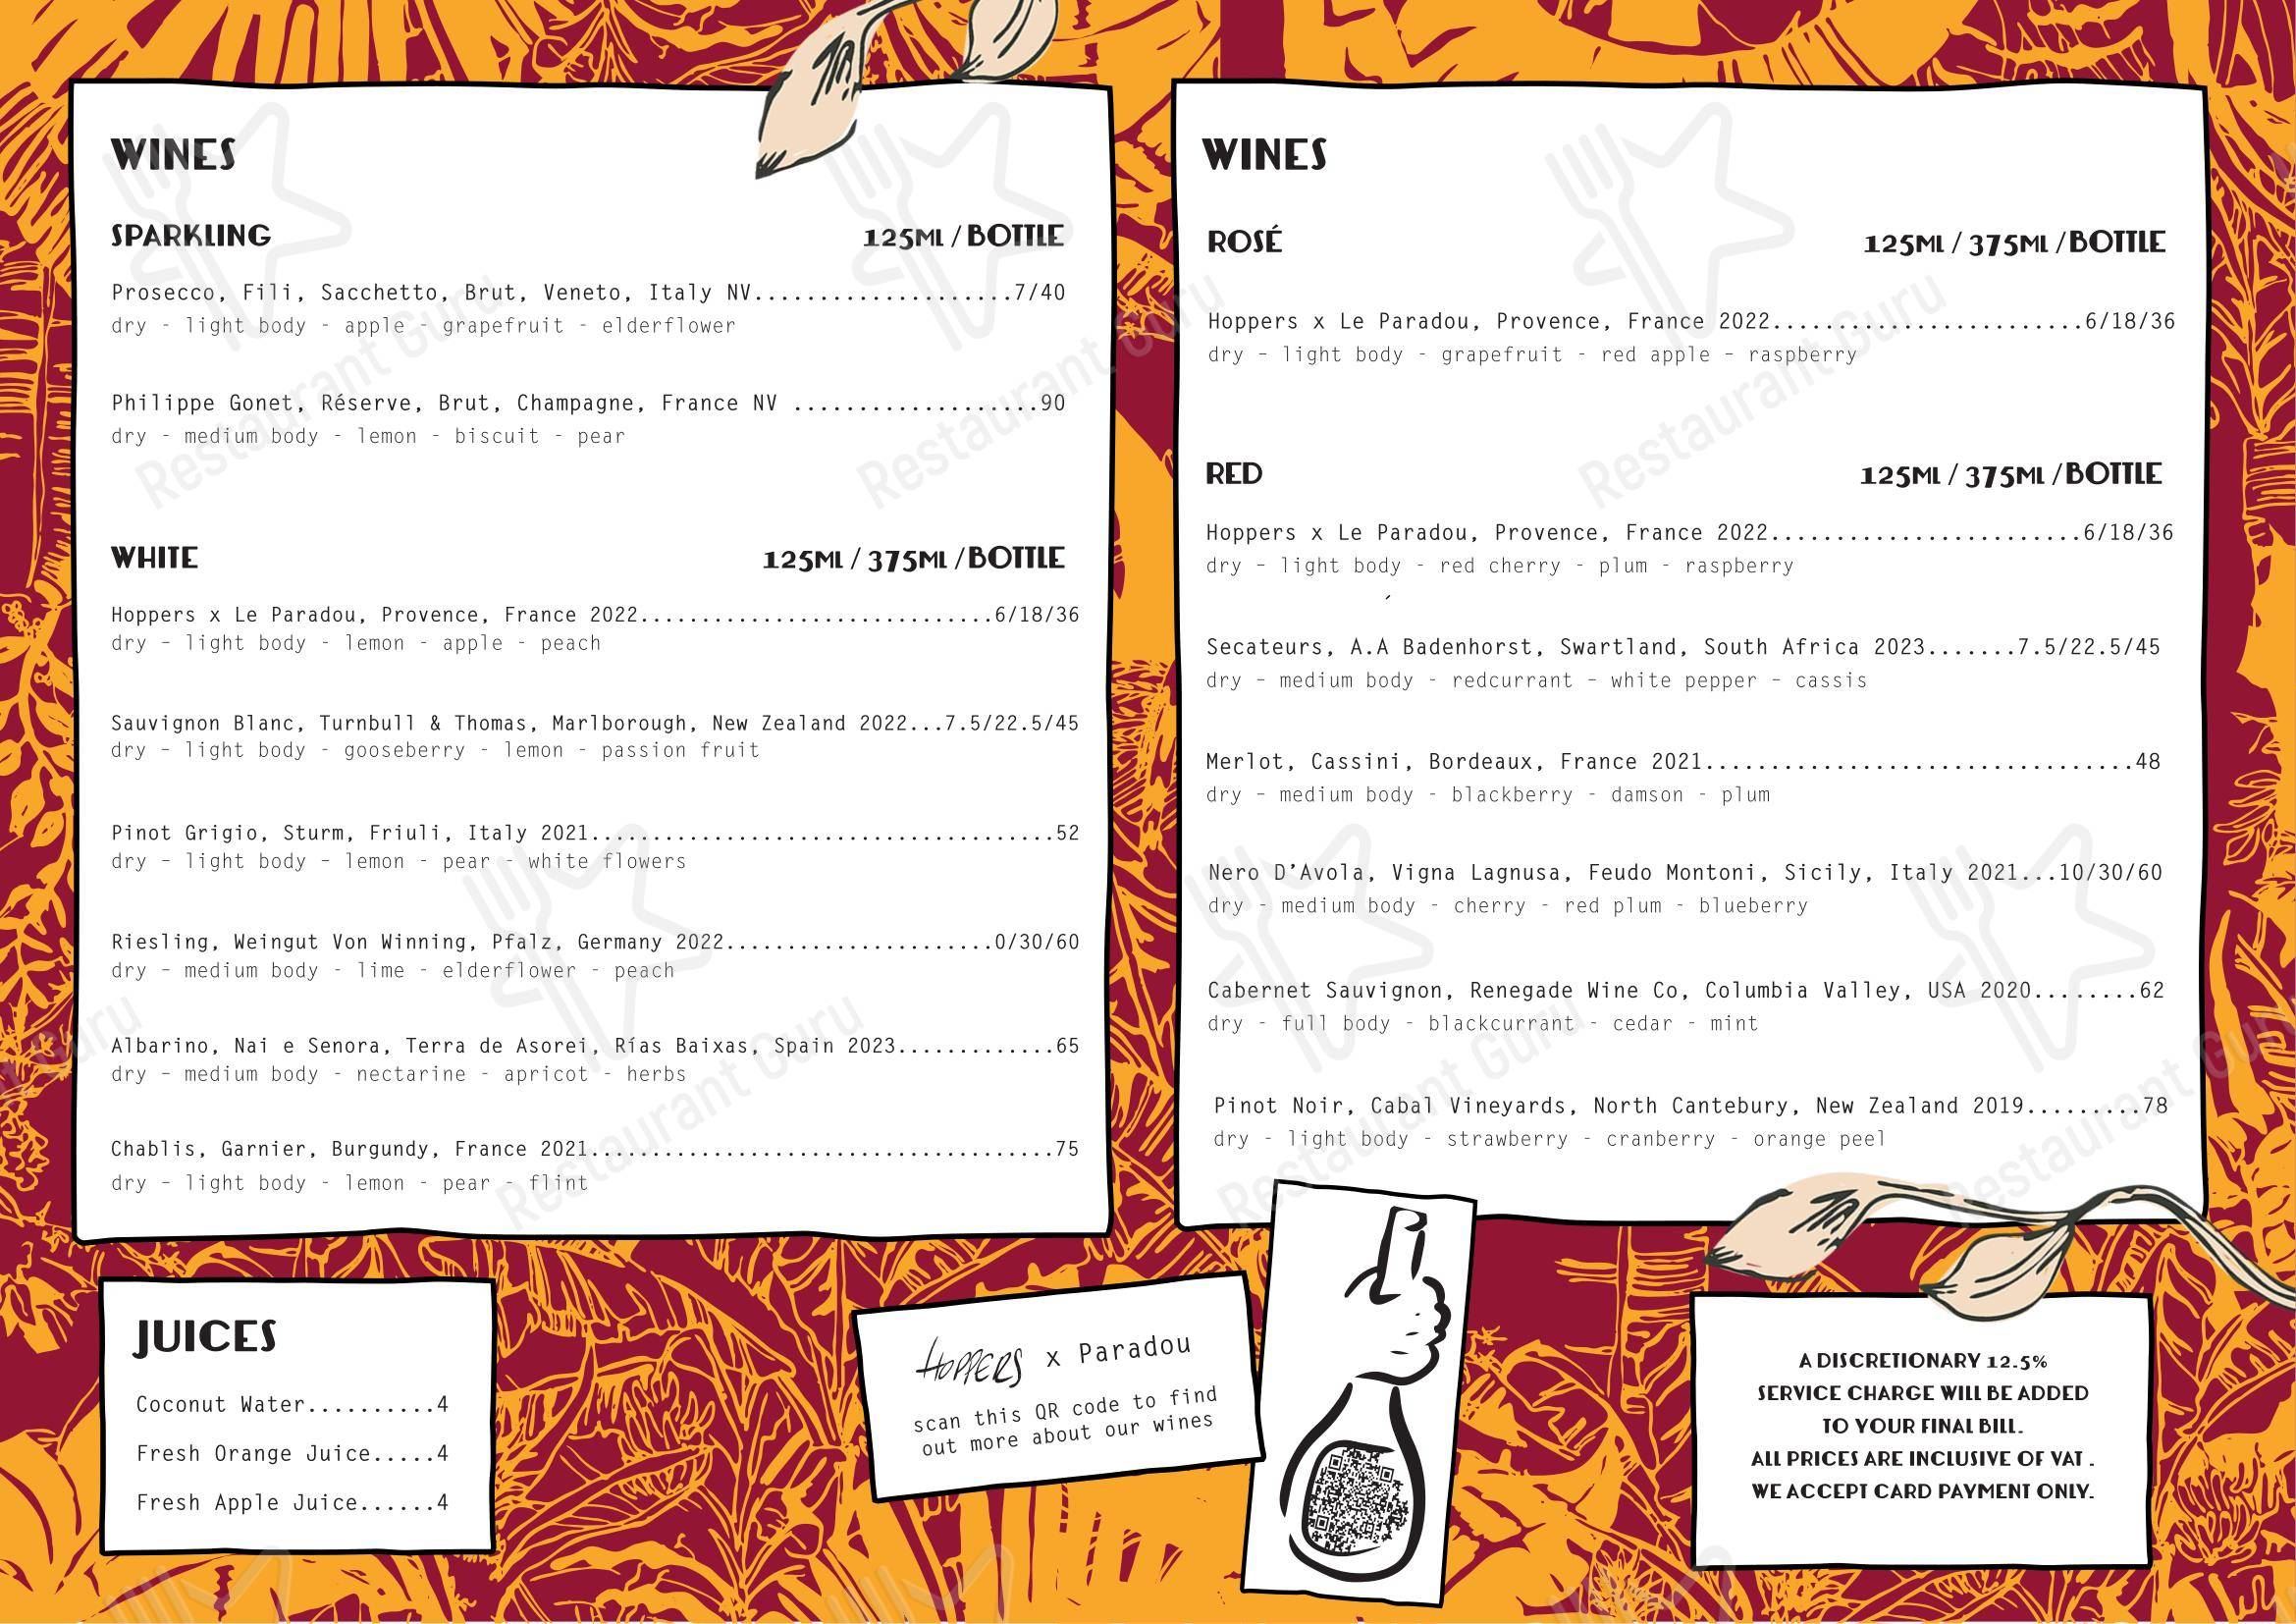 WINES
SPARKLING 125ML / BOTTLE
Prosecco, Fili, Sacchetto, Brut, Veneto, Italy NV....................7/40
dry - light body - apple - grapefruit - elderflower
Philippe Gonet, Réserve, Brut, Champagne, France NV ...................90
dry - medium body - lemon - biscuit - pear
WHITE 125ML / 375ML / BOTTLE
Hoppers x Le Paradou, Provence, France 2022.............................6/18/36
dry - light body - lemon - apple - peach
Sauvignon Blanc, Turnbull & Thomas, Marlborough, New Zealand 2022...7.5/22.5/45
dry - light body - gooseberry - lemon - passion fruit
Pinot Grigio, Sturm, Friuli, Italy 2021......................................52
dry - light body - lemon - pear - white flowers
Riesling, Weingut Von Winning, Pfalz, Germany 2022......................0/30/60
dry - medium body - lime - elderflower - peach
Albarino, Nai e Senora, Terra de Asorei, Rías Baixas, Spain 2023.............65
dry - medium body - nectarine - apricot - herbs
Chablis, Garnier, Burgundy, France 2021......................................75
dry - light body - lemon - pear - flint
WINES
ROSÉ 125ML / 375ML / BOTTLE
Hoppers x Le Paradou, Provence, France 2022........................6/18/36
dry - light body - grapefruit - red apple - raspberry
RED 125ML / 375ML / BOTTLE
Hoppers x Le Paradou, Provence, France 2022........................6/18/36
dry - light body - red cherry - plum - raspberry
Secateurs, A.A Badenhorst, Swartland, South Africa 2023.......7.5/22.5/45
dry - medium body - redcurrant - white pepper - cassis
Merlot, Cassini, Bordeaux, France 2021.................................48
dry - medium body - blackberry - damson - plum
Nero D'Avola, Vigna Lagnusa, Feudo Montoni, Sicily, Italy 2021...10/30/60
dry - medium body - cherry - red plum - blueberry
Cabernet Sauvignon, Renegade Wine Co, Columbia Valley, USA 2020........62
dry - full body - blackcurrant - cedar - mint
Pinot Noir, Cabal Vineyards, North Cantebury, New Zealand 2019.........78
dry - light body - strawberry - cranberry - orange peel
JUICES
Coconut Water..........4
Fresh Orange Juice.....4
Fresh Apple Juice......4
HOPPERS x Paradou
scan this QR code to find
out more about our wines
A DISCRETIONARY 12.5%
SERVICE CHARGE WILL BE ADDED
TO YOUR FINAL BILL.
ALL PRICES ARE INCLUSIVE OF VAT .
WE ACCEPT CARD PAYMENT ONLY.
Restaurant Guru
Restaurant Guru
Restaurant Guru
Restaurant Guru
Restaurant Guru
Restaurant Guru